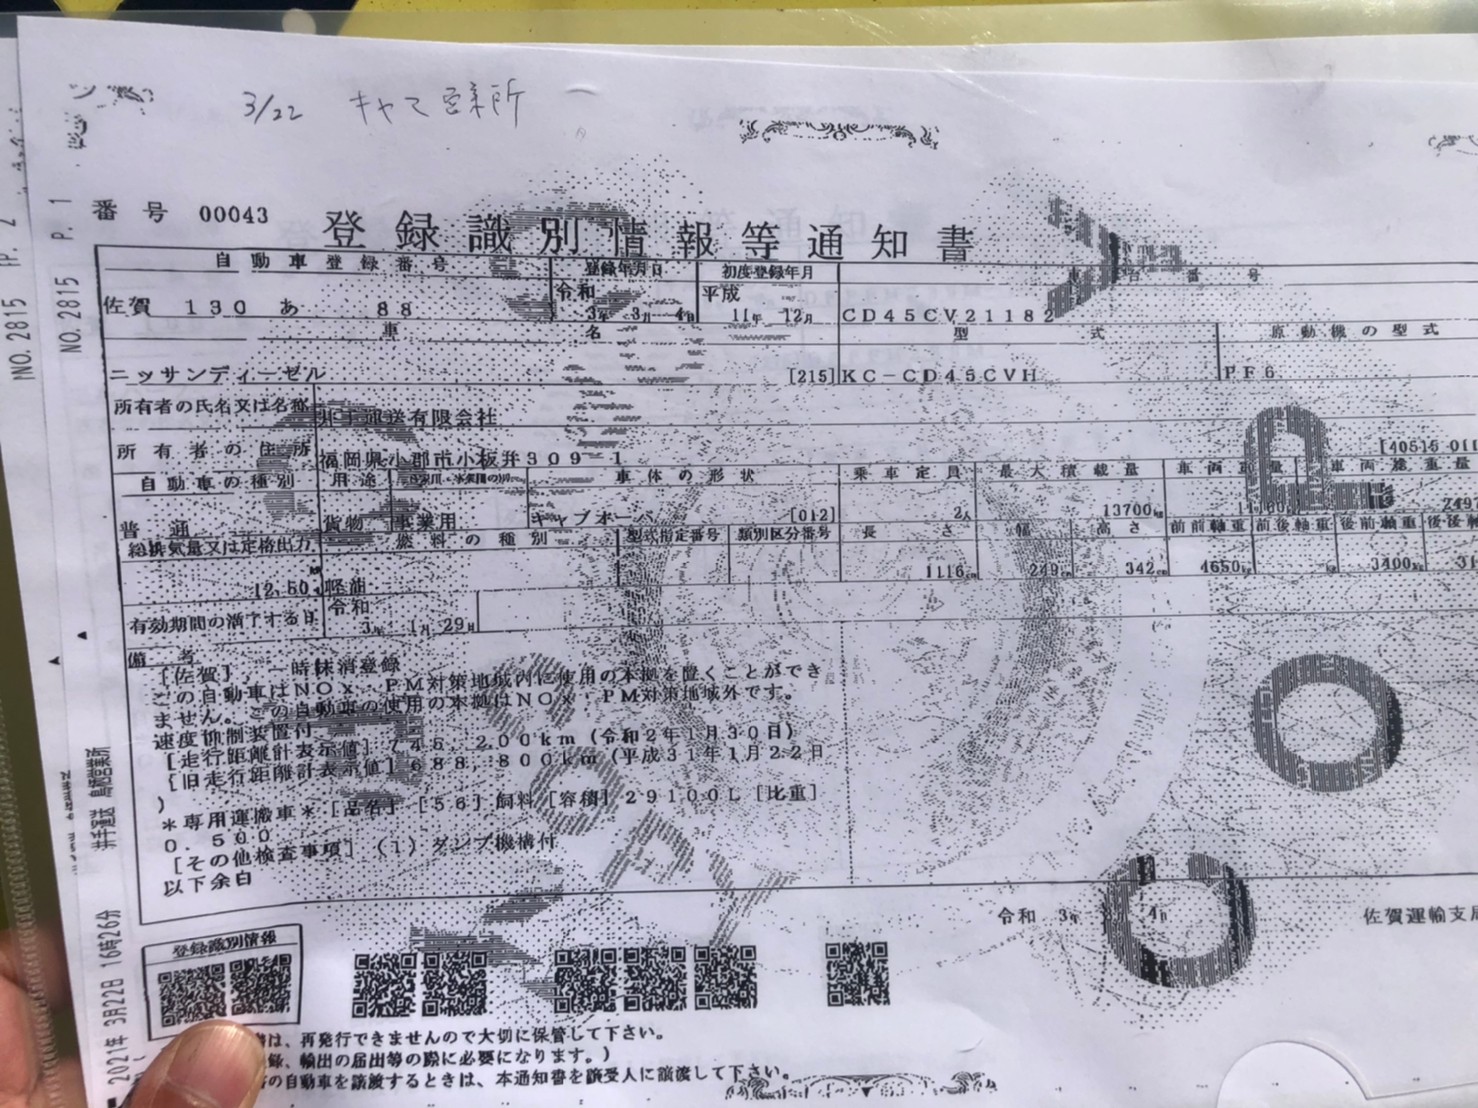 3/22 キャマ営業所
番号 00043
登録識別情報等通知書
自動車登録番号 登録年月日 初度登録年月 車台番号
佐賀 130 あ 88 令和 3年 3月 4日 平成 11年 12月 CD45CV21182
車名 型式 原動機の型式
ニッサンディーゼル [215] KC-CD45CVH PF6
所有者の氏名又は名称 井手運送有限会社
所有者の住所 福岡県小郡市小板井309-1 [40515 011
自動車の種別 用途 自家用・事業用の別 車体の形状 乗車定員 最大積載量 車両重量 車両総重量
普通 貨物 事業用 キャブオーバ [012] 2人 13700kg
総排気量又は定格出力 燃料の種別 型式指定番号 類別区分番号 長さ 幅 高さ 前前軸重 前後軸重 後前軸重 後後軸
軽油 1116cm 249cm 342cm 4650kg kg 3400kg 31
有効期間の満了する日 令和 3年 1月 29日
備考
[佐賀], 一時抹消登録
この自動車はNOx・PM対策地域内に使用の本拠を置くことができ
ません。この自動車の使用の本拠はNOx・PM対策地域外です。
速度抑制装置付
[走行距離計表示値] 745,200km (令和2年1月30日)
[旧走行距離計表示値] 688,800km (平成31年1月22日
)
*専用運搬車* [品名] [56] 飼料 [容積] 29100L [比重]
0.500
[その他検査事項] (1) ダンプ機構付
以下余白
令和 3年 3月 4日 佐賀運輸支局
登録識別情報
は、再発行できませんので大切に保管して下さい。
録、輸出の届出等の際に必要になります。)
の自動車を譲渡するときは、本通知書を譲受人に譲渡して下さい。
2021年 3月22日 16時26分 井手運送 鳥栖営業所 NO. 2815 P. 1
NO. 2815 P. 2
COPY
COPY